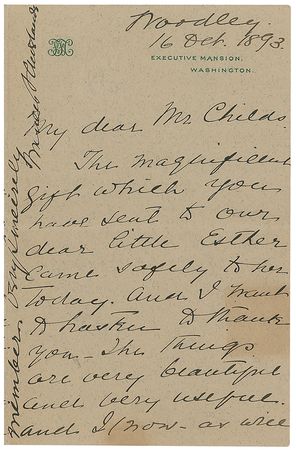 Woodley.
16 Oct. 1893.
EXECUTIVE MANSION,
WASHINGTON.
My dear Mr Childs.
The magnificent
gift which you
have sent to our
dear little Esther
came safely to her
today. And I want
to hasten to thank
you - The things
are very beautiful
and very useful.
and I now - as well
Very sincerely